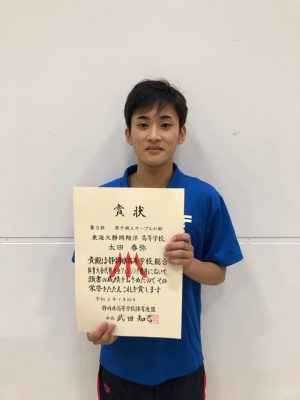 賞状
第3位 男子個人サーブルの部
東海大静岡翔洋 高等学校
太田 春弥
貴殿は静岡県高等学校総合
体育大会
において
頭書の成績をおさめたのでその
栄誉をたたえこれを賞します
静岡県高等学校体育連盟
会長 武田知己